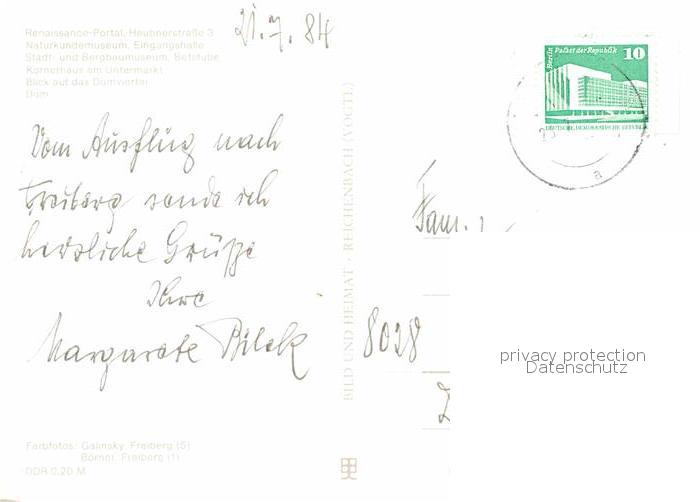 Renaissance-Portal, Heubnerstraße 3
Naturkundemuseum, Eingangshalle
Stadt- und Bergbaumuseum, Betstube
Kornerhaus am Untermarkt
Blick auf das Domviertel
Dom
21.7.84
Vom Ausflug nach
Freiberg sende ich
herzliche Grüße
Ihre
Margarete Bilek
Farbfotos: Galinsky, Freiberg (5)
Börner, Freiberg (1)
DDR 0,20 M
BILD UND HEIMAT · REICHENBACH (VOGTL)
Berlin Palast der Republik
10
DEUTSCHE DEMOKRATISCHE REPUBLIK
a
Fam.
8028
privacy protection
Datenschutz